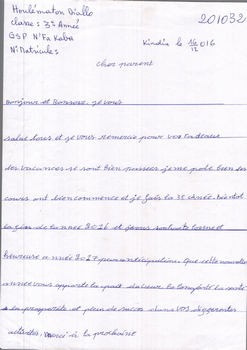 Houlématou Diallo
201032
classe : 3è Année
GSP N'Fa Kaba
N: Matricule :
Kindia le 16/12/016
cher parent
Bonjour et Bonsoir, je vous
salue tous et je vous remercie pour vos cadeaux
les vacances se sont bien passées je me porte bien les
cours ont bien commencé et je fais la 3è année. bientôt
la fin de l'année 2016 et je vous souhaite bonne et
heureuse année 2017 par anticipation. Que cette nouvelle
année vous apporte la paix le la santé
la prospérité et plein de succès dans vos différentes
activités. merci à la prochaine